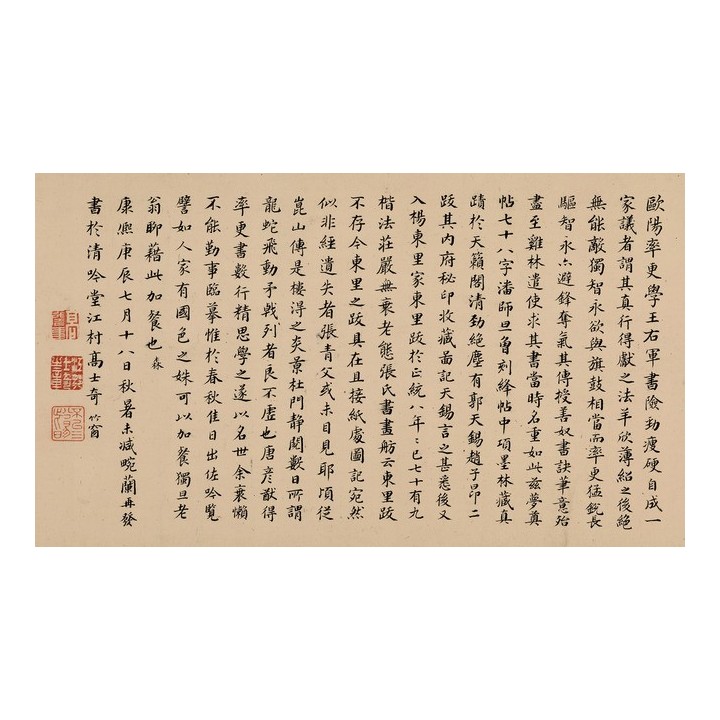 歐陽率更學王右軍書險勁瘦硬自成一
家議者謂其真行得獻之法羊欣薄紹之後絕
無能敵獨智永欲與旗鼓相當而率更猛銳長
驅智永亦避鋒奪氣其傳授善奴書訣筆意殆
盡至雞林遣使求其書當時名重如此茲夢奠
帖七十八字潘師旦曾刻絳帖中項墨林藏真
蹟於天籟閣清勁絕塵有郭天錫趙子昂二
跋其內府秘印收藏圖記天錫言之甚悉後又
入楊東里家東里跋於正統八年年已七十有九
楷法莊嚴無衰老態張氏書畫舫云東里跋
不存今東里之跋具在且接紙處圖記宛然
似非經遺失者張青父或未目見耶頃從
崑山傳是樓得之炎景杜門靜閱數日所謂
龍蛇飛動矛戟列者良不虛也唐彥猷得
率更書數行精思學之遂以名世余衰懶
不能勤事臨摹惟於春秋佳日出佐吟覽
譬如人家有國色之姝可以加餐獨旦老
翁聊藉此加餐也
康熙庚辰七月十八日秋暑未減畹蘭再發
書於清吟堂江村高士奇
竹窗